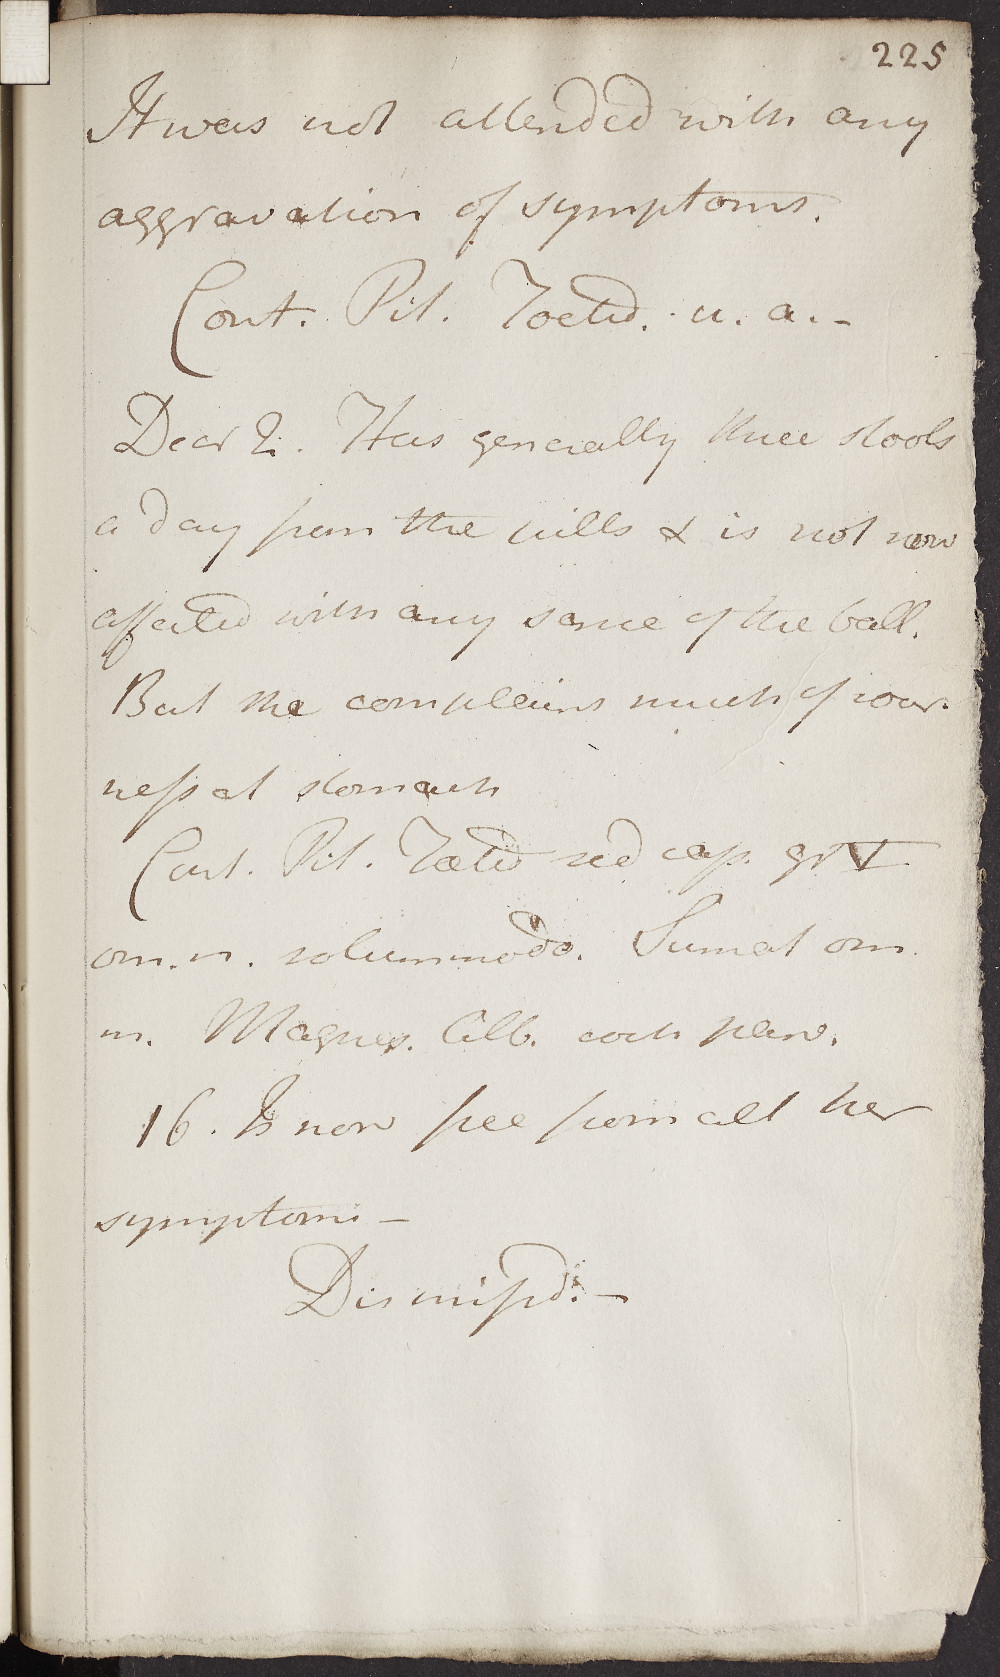 225
It was not attended with any
aggravation of symptoms.
Cont. Pil. Foetid. u. a. –
Decr 2. Has generally three stools
a day from the pills & is not now
affected with any sense of the ball.
But she complains much of sour-
ness at stomach
Cont. Pil. Foetid sed cap. gr V
om. n. solummodo. Sumat om.
m. Magnes. Alb. coch parv.
16. Is now free from all her
symptoms –
Dismissd. –